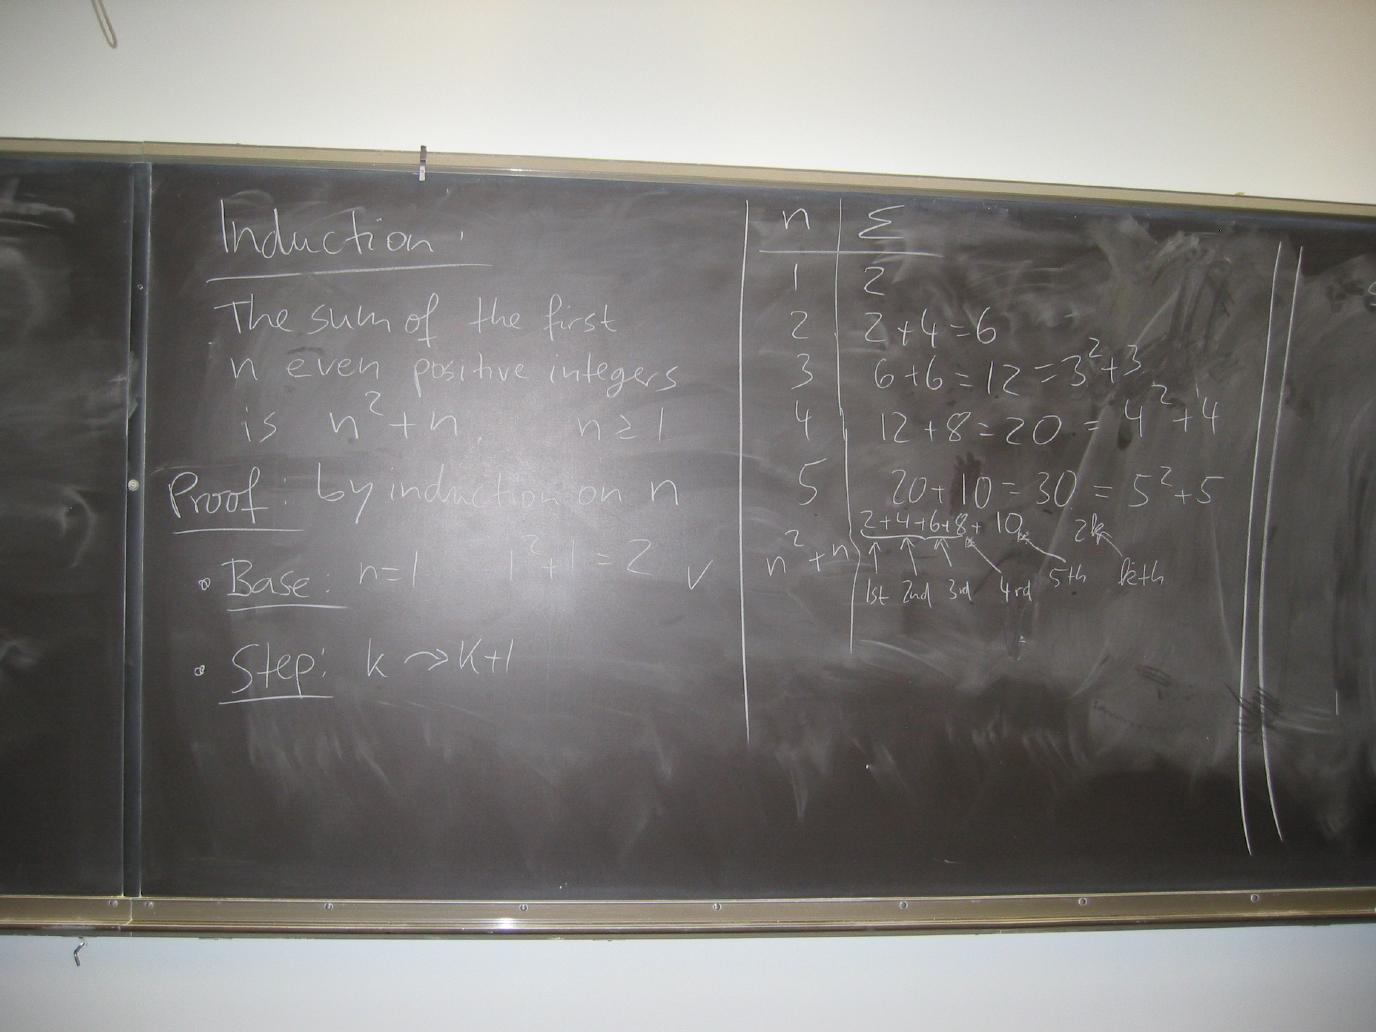 Induction:
The sum of the first
n even positive integers
is n²+n. n≥1
Proof: by induction on n
Base: n=1 1²+1=2 ✓
Step: k → k+1
n Σ
1 2
2 2+4=6
3 6+6=12=3²+3
4 12+8=20=4²+4
5 20+10=30=5²+5
n²+n 2+4+6+8+10 2k
1st 2nd 3rd 4rd 5th kth